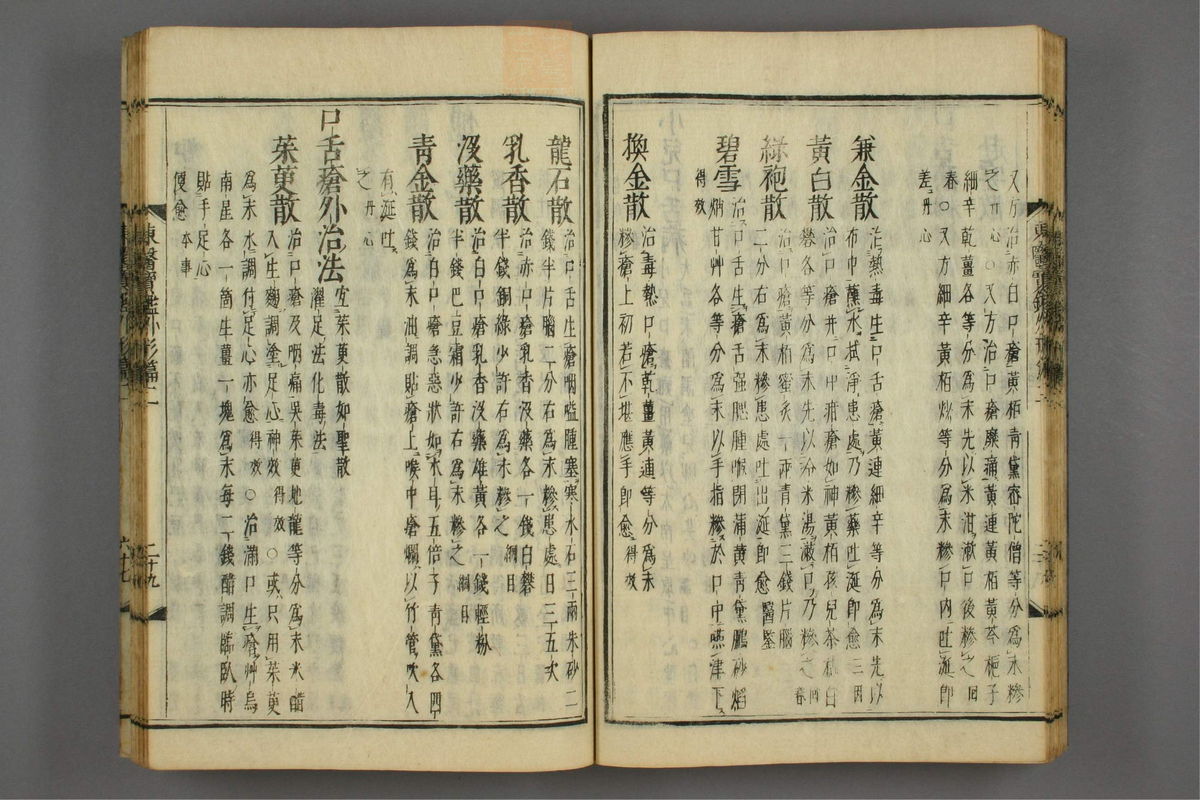 又方治赤白口瘡黃栢青黛密陀僧等分爲末糝
之丹心○又方治口瘡糜痛黃連黃栢黃芩梔子
細辛乾薑各等分爲末先以米泔漱口後糝之回
春○又方細辛黃栢炒等分爲末糝口內吐涎卽
差丹心
兼金散治熱毒生口舌瘡黃連細辛等分爲末先以
布巾蘸水拭淨患處乃糝藥吐涎卽愈三因
黃白散治口瘡幷口中疳瘡如神黃栢孩兒茶枯白
礬各等分爲末先以冷米湯漱口乃糝之回春
綠袍散治口瘡黃栢蜜灸一兩靑黛三錢片腦
二分右爲末糝患處吐出涎卽愈醫鑒
碧雪治口舌生瘡舌强腮腫喉閉蒲黃靑黛鵬砂焰
焇甘艸各等分爲末以手指糝於口中嚥津下
得效
換金散治毒熱口瘡乾薑黃連等分爲末
糝瘡上初若不堪應手卽愈得效
東醫寶鑑外形篇二
龍石散治口舌生瘡咽嗌腫塞寒水石三兩朱砂二
錢半片腦二分右爲末糝患處日三五次
乳香散治赤口瘡乳香沒藥各一錢白礬
半錢銅綠少許右爲末糝之綱目
沒藥散治白口瘡乳香沒藥雄黃各一錢輕粉
半錢巴豆霜少許右爲末糝之綱目
青金散治白口瘡急惡狀如木耳五倍子靑黛各四
錢爲末油調貼瘡上喉中瘡爛以竹管吹入
有涎吐
之丹心
口舌瘡外治法宜茱萸散如聖散
濯足法化毒法
茱萸散治口瘡及咽痛吳茱萸地龍等分爲末米醋
入生麪調塗足心神效得效○或只用茱萸
爲末水調付足心亦愈得效○治滿口生瘡艸烏
南星各一箇生薑一塊爲末每二錢醋調臨臥時
貼手足心
便愈本事
東醫寶鑑外形篇二
二十九